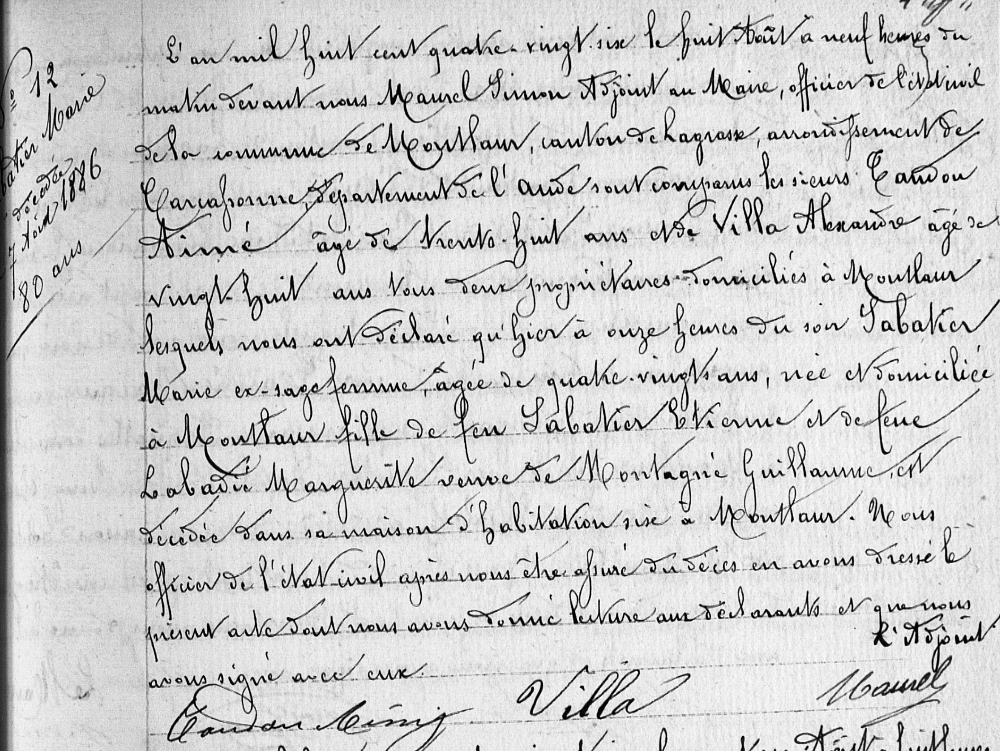 N° 12
Marie
décédée
7 Août 1886
80 ans
L'an mil huit cent quatre-vingt six le huit Août à neuf heures du
matin devant nous Maurel Simon Adjoint au Maire, officier de l'état civil
de la commune de Montlaur, canton de Lagrasse, arrondissement de
Carcassonne, département de l'Aude sont comparus les sieurs Tandou
Aimé âgé de trente-huit ans et de Villa Alexandre âgé de
vingt-huit ans tous deux propriétaires domiciliés à Montlaur
lesquels nous ont déclaré qu'hier à onze heures du soir Sabatier
Marie ex-sage femme, âgée de quatre-vingts ans, née et domiciliée
à Montlaur fille de feu Sabatier Etienne et de feue
Labadié Marguerite veuve de Montagné Guillaume, est
décédée dans sa maison d'habitation sise à Montlaur. Nous
officier de l'état civil après nous être assuré du décès en avons dressé le
présent acte dont nous avons donné lecture aux déclarants et que nous
avons signé avec eux.
L'Adjoint
Villa
Maurel